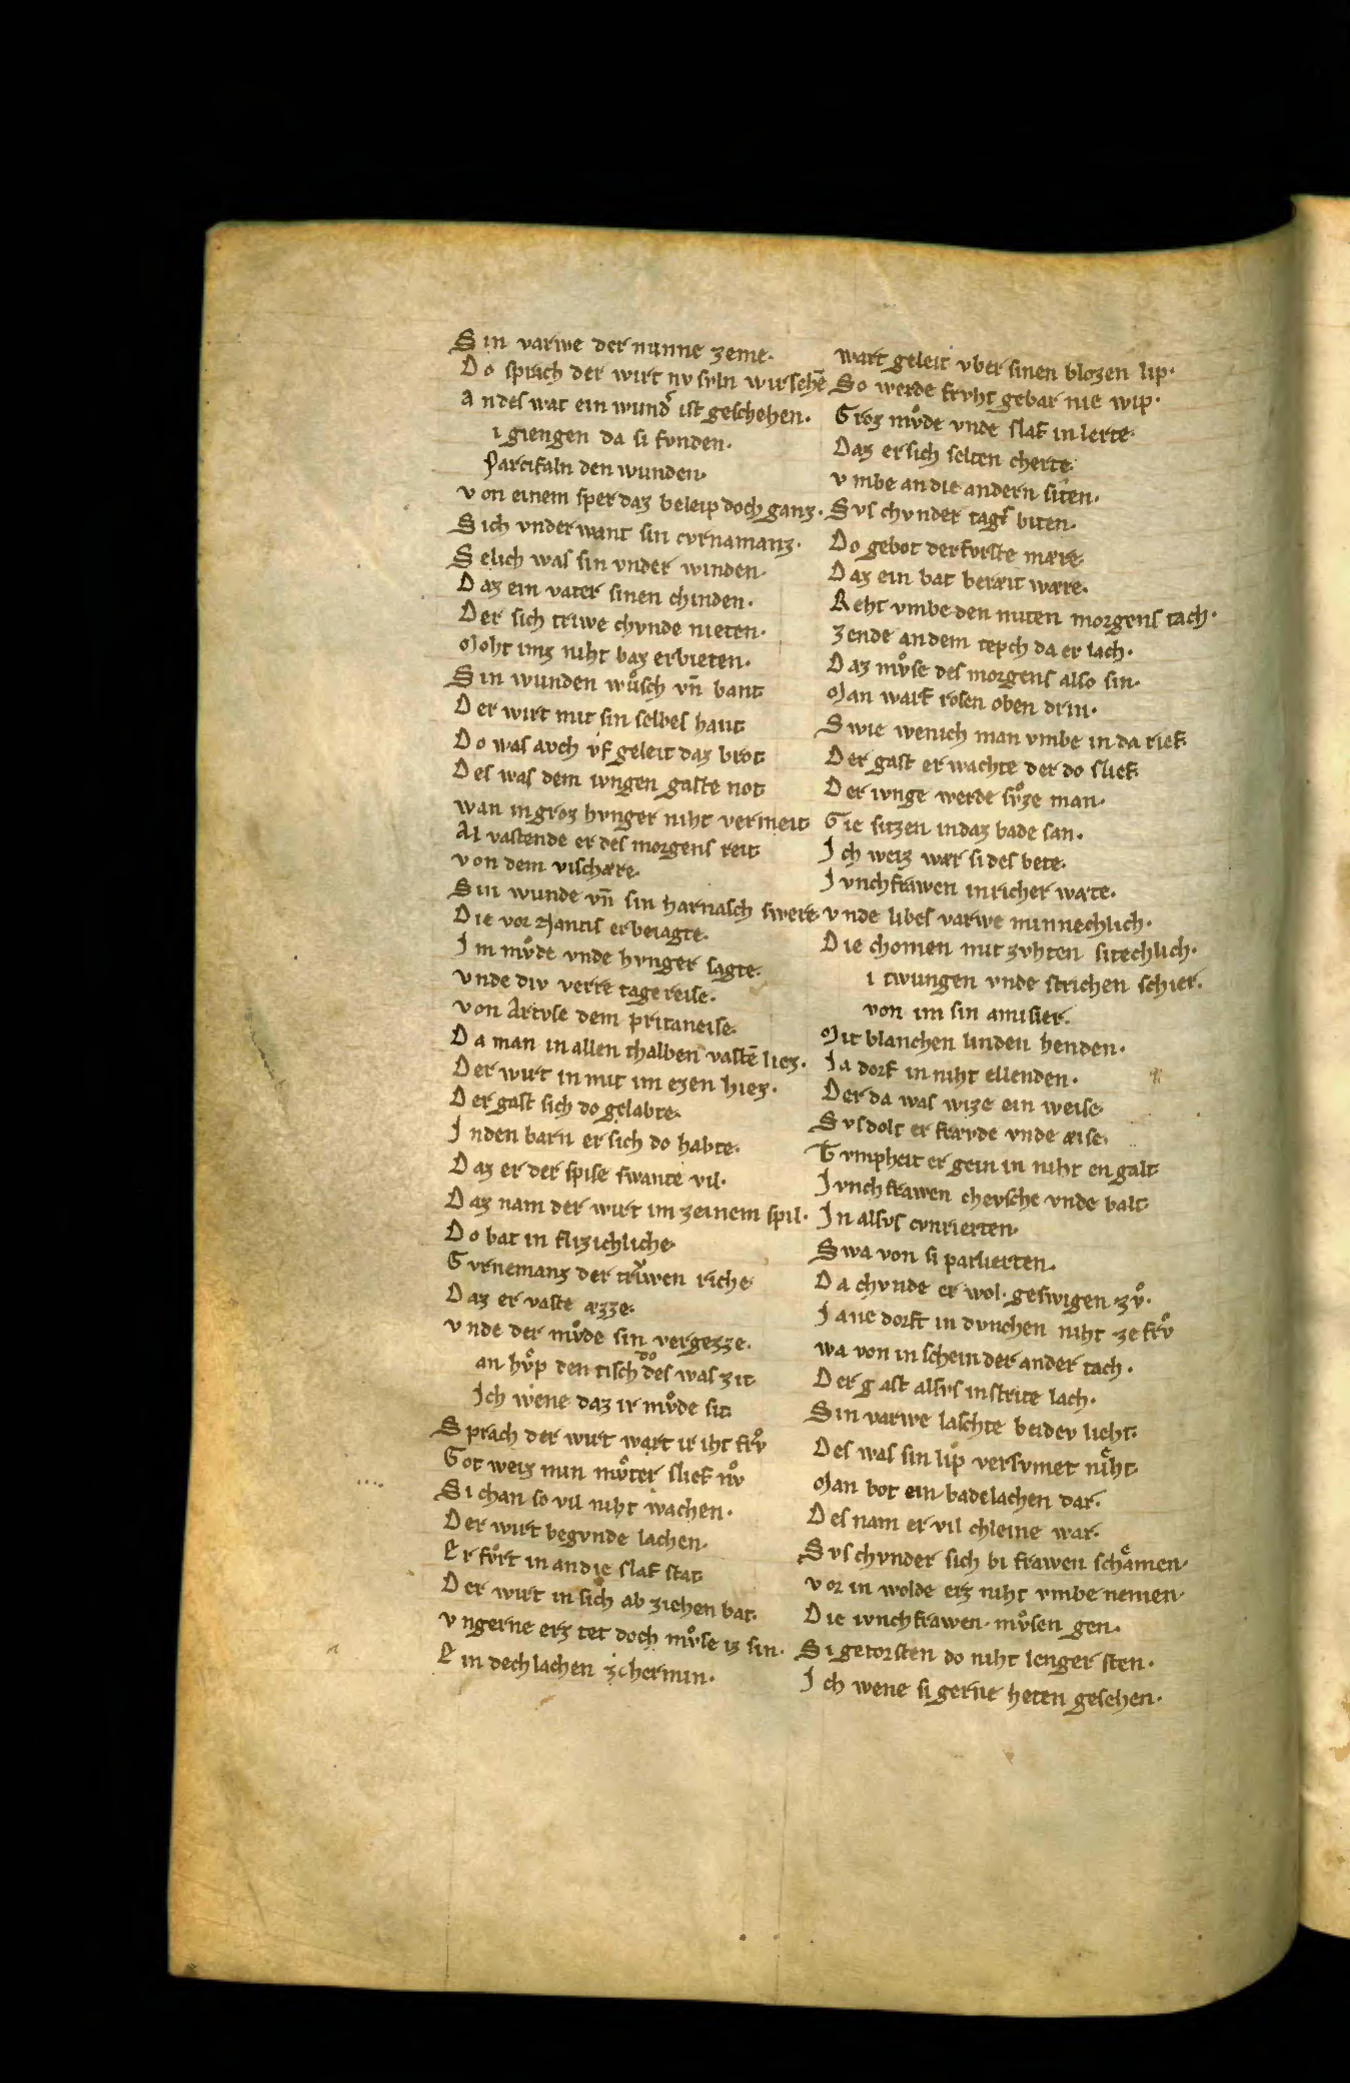 Sin varwe der minne zeme·
Do sprach der wirt nv svln wir sehē
Andes wat ein wund᷒ ist geschehen·
i giengen da si fvnden·
Parcifaln den wunden·
von einem sper daz beleip doch ganz·
Sich vnder want sin cvrnamanz·
Selich was sin vnder winden·
Daz ein vater sinen chinden·
Der sich triwe chvnde nieten·
Moht imz niht baz erbieten·
Sin wunden wůsch vn̄ bant
Der wirt mit sin selbes hant
Do was avch vf geleit daz brot
Des was dem ivngen gaste not
wan in groz hvnger niht vermeit
Al vastende er des morgens reit
von dem vischære·
Sin wunde vn̄ sin harnasch swere
Die vor Nantis erbeiagte·
Im mvͦde vnde hvnger sagte·
vnde div verre tage reise·
von Artvse dem pritaneise·
Da man in allen thalben vastē liez·
Der wirt in mit im ezen hiez·
Der gast sich do gelabte·
In den barn er sich do habte·
Daz er der spise swante vil·
Daz nam der wirt im zeinem spil·
Do bat in flizichliche·
Gvrnemanz der trv̓wen riche·
Daz er vaste æzze·
vnde der mvͦde sin vergezze·
an hvͦp den tisch do des was zit
Ich wene daz ir mvͦde sit
Sprach der wirt wart ir iht frvͦ
Got weiz min mvͦter slief nvͦ
Si chan so vil niht wachen·
Der wirt begvnde lachen·
Er fvͦrt in an die slaf stat
Der wirt in sich ab ziehen bat·
vngerne erz tet doch mvͦse iz sin·
Ein dechlachen hermin·
wart geleit vber sinen blozen lip·
So werde frvht gebar nie wip·
Groz mvͦde vnde slaf in lerte·
Daz er sich selten cherte·
vmbe an die andern siten·
Svs chvnder tags biten·
Do gebot der fvrste mære·
Daz ein bat bereit wære·
Reht vmbe den miten morgens tach·
zende an dem tepch da er lach·
Daz mvͦse des morgens also sin·
Man warf rosen oben drin·
Swie wenich man vmbe in da rief
Der gast er wachte der do slief
Der ivnge werde svͦze man·
Gie sitzen in daz bade san·
Ich weiz wær si des bete·
Ivnchfrawen in richer wate·
vnde libes varwe minnechlich·
Die chomen mit zvhten sitechlich·
i twungen vnde strichen schier·
von im sin amisier·
Mit blanchen linden henden·
Ia dorf in niht ellenden·
Der da was wize ein weise
Svs dolt er frævde vnde æise·
Tvmpheit er gein in niht engalt
Ivnchfrawen chevsche vnde balt
In alsvs cvnrierten·
Swa von si parlierten·
Da chvnde er wol· geswigen zvͦ·
Iane dorft in dvnchen niht ze frvͦ
wa von in schein der ander tach·
Der gast alsvs in strite lach·
Sin varwe laschte beidev lieht·
Des was sin lip versvmet niͤht
Man bot ein badelachen dar·
Des nam er vil chleine war·
Svs chvnder sich bi frawen schaͤmen·
vor in wolde erz niht vmbe nemen·
Die ivnchfrawen· mvͦsen gen·
Si getorsten do niht lenger sten·
Ich wene si gerne heten gesehen·